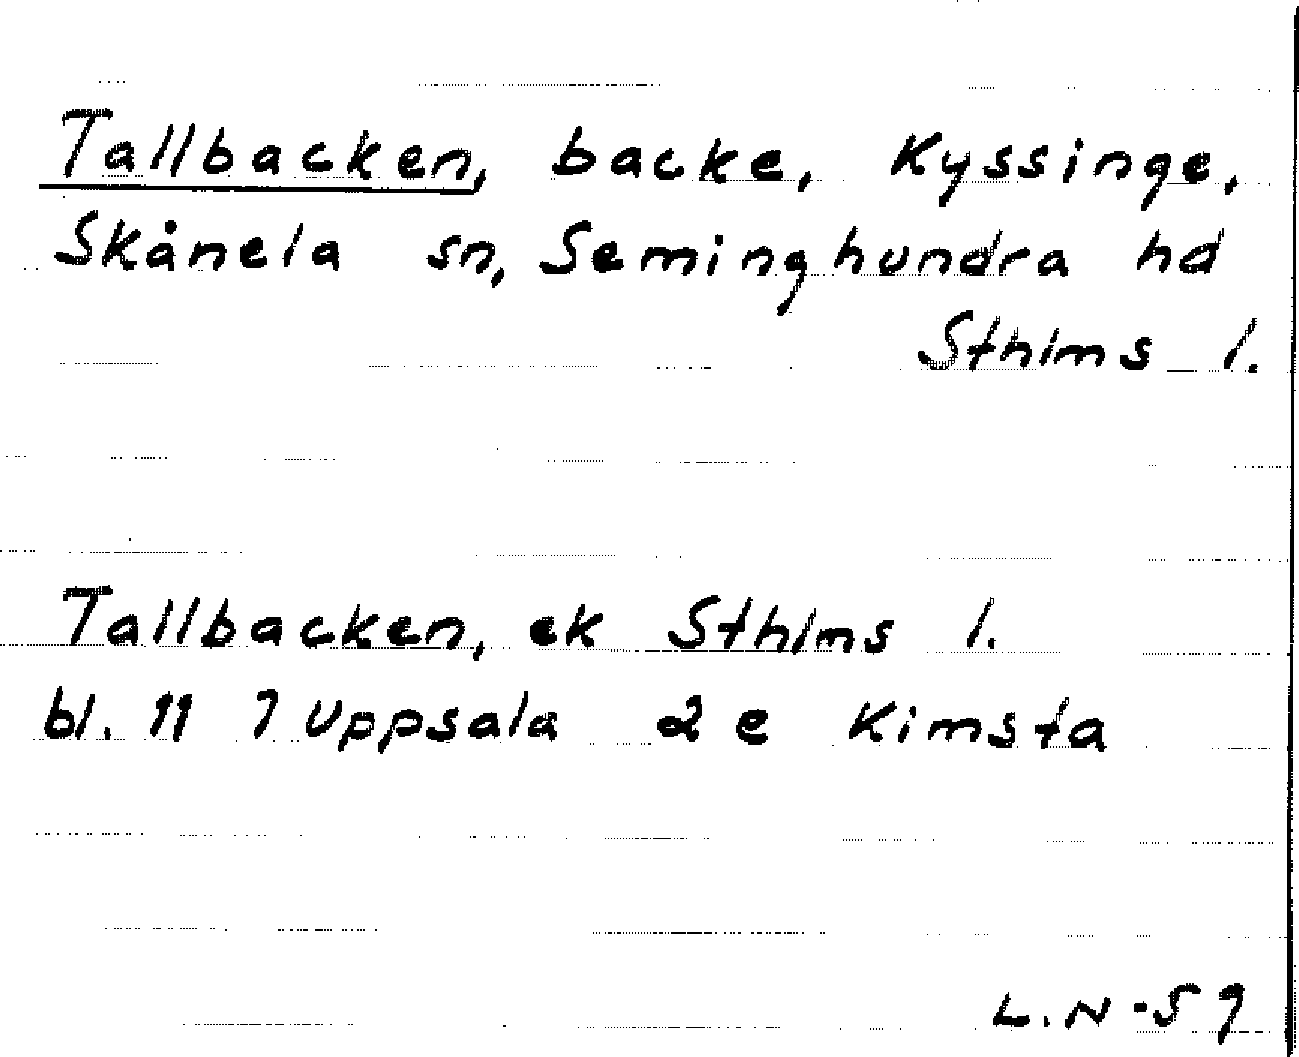 Tallbacken, backe, Kyssinge,
Skånela sn, Seminghundra hd
Sthlms l.
Tallbacken, ek Sthlms l.
bl. 11 7 Uppsala 2 e Kimsta
L.N-59